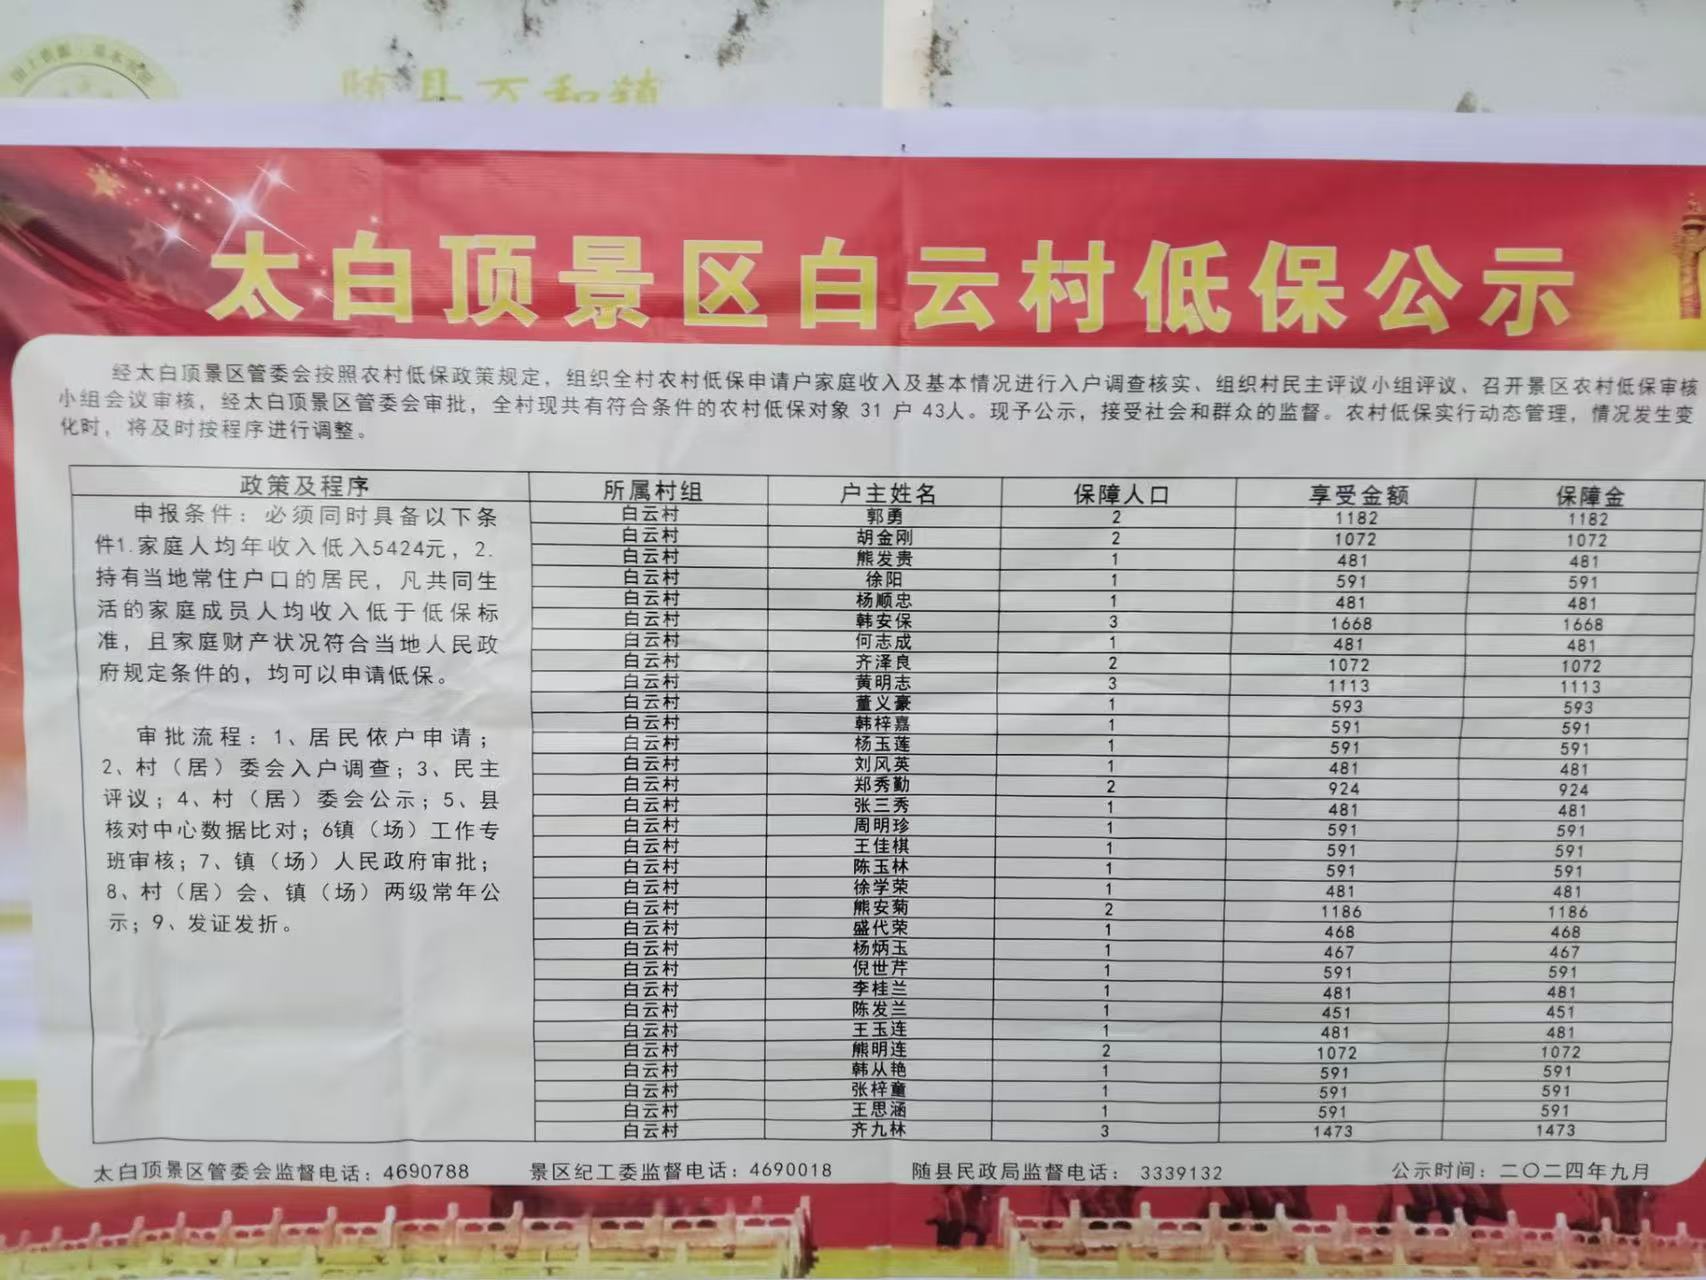 随县万和镇
太白顶景区白云村低保公示
经太白顶景区管委会按照农村低保政策规定，组织全村农村低保申请户家庭收入及基本情况进行入户调查核实、组织村民主评议小组评议、召开景区农村低保审核
小组会议审核，经太白顶景区管委会审批，全村现共有符合条件的农村低保对象 31 户 43人。现予公示，接受社会和群众的监督。农村低保实行动态管理，情况发生变
化时，将及时按程序进行调整。
政策及程序 所属村组 户主姓名 保障人口 享受金额 保障金
申报条件：必须同时具备以下条
件1.家庭人均年收入低入5424元，2.
持有当地常住户口的居民，凡共同生
活的家庭成员人均收入低于低保标
准，且家庭财产状况符合当地人民政
府规定条件的，均可以申请低保。
审批流程：1、居民依户申请；
2、村（居）委会入户调查；3、民主
评议；4、村（居）委会公示；5、县
核对中心数据比对；6镇（场）工作专
班审核；7、镇（场）人民政府审批；
8、村（居）会、镇（场）两级常年公
示；9、发证发折。
白云村 郭勇 2 1182 1182
白云村 胡金刚 2 1072 1072
白云村 熊发贵 1 481 481
白云村 徐阳 1 591 591
白云村 杨顺忠 1 481 481
白云村 韩安保 3 1668 1668
白云村 何志成 1 481 481
白云村 齐泽良 2 1072 1072
白云村 黄明志 3 1113 1113
白云村 董义豪 1 593 593
白云村 韩梓嘉 1 591 591
白云村 杨玉莲 1 591 591
白云村 刘风英 1 481 481
白云村 郑秀勤 2 924 924
白云村 张三秀 1 481 481
白云村 周明珍 1 591 591
白云村 王佳棋 1 591 591
白云村 陈玉林 1 591 591
白云村 徐学荣 1 481 481
白云村 熊安菊 2 1186 1186
白云村 盛代荣 1 468 468
白云村 杨炳玉 1 467 467
白云村 倪世芹 1 591 591
白云村 李桂兰 1 481 481
白云村 陈发兰 1 451 451
白云村 王玉连 1 481 481
白云村 熊明连 2 1072 1072
白云村 韩从艳 1 591 591
白云村 张梓童 1 591 591
白云村 王思涵 1 591 591
白云村 齐九林 3 1473 1473
太白顶景区管委会监督电话：4690788 景区纪工委监督电话：4690018 随县民政局监督电话： 3339132 公示时间：二〇二四年九月